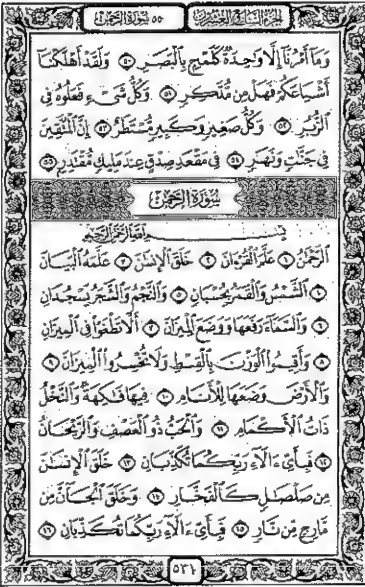 الجزء السابع والعشرون
٥٥ سورة الرحمن
وَمَآ أَمْرُنَآ إِلَّا وَٰحِدَةٌ كَلَمْحٍۭ بِٱلْبَصَرِ ۝٥٠ وَلَقَدْ أَهْلَكْنَآ
أَشْيَاعَكُمْ فَهَلْ مِن مُّدَّكِرٍ ۝٥١ وَكُلُّ شَىْءٍ فَعَلُوهُ فِى
ٱلزُّبُرِ ۝٥٢ وَكُلُّ صَغِيرٍ وَكَبِيرٍ مُّسْتَطَرٌ ۝٥٣ إِنَّ ٱلْمُتَّقِينَ
فِى جَنَّٰتٍ وَنَهَرٍ ۝٥٤ فِى مَقْعَدِ صِدْقٍ عِندَ مَلِيكٍ مُّقْتَدِرٍۭ ۝٥٥
سُورَةُ الرَّحْمَٰن
بِسْمِ ٱللَّهِ ٱلرَّحْمَٰنِ ٱلرَّحِيمِ
ٱلرَّحْمَٰنُ ۝١ عَلَّمَ ٱلْقُرْءَانَ ۝٢ خَلَقَ ٱلْإِنسَٰنَ ۝٣ عَلَّمَهُ ٱلْبَيَانَ
۝٤ ٱلشَّمْسُ وَٱلْقَمَرُ بِحُسْبَانٍ ۝٥ وَٱلنَّجْمُ وَٱلشَّجَرُ يَسْجُدَانِ
۝٦ وَٱلسَّمَآءَ رَفَعَهَا وَوَضَعَ ٱلْمِيزَانَ ۝٧ أَلَّا تَطْغَوْا۟ فِى ٱلْمِيزَانِ
۝٨ وَأَقِيمُوا۟ ٱلْوَزْنَ بِٱلْقِسْطِ وَلَا تُخْسِرُوا۟ ٱلْمِيزَانَ ۝٩
وَٱلْأَرْضَ وَضَعَهَا لِلْأَنَامِ ۝١٠ فِيهَا فَٰكِهَةٌ وَٱلنَّخْلُ
ذَاتُ ٱلْأَكْمَامِ ۝١١ وَٱلْحَبُّ ذُو ٱلْعَصْفِ وَٱلرَّيْحَانُ
۝١٢ فَبِأَىِّ ءَالَآءِ رَبِّكُمَا تُكَذِّبَانِ ۝١٣ خَلَقَ ٱلْإِنسَٰنَ
مِن صَلْصَٰلٍ كَٱلْفَخَّارِ ۝١٤ وَخَلَقَ ٱلْجَآنَّ مِن
مَّارِجٍ مِّن نَّارٍ ۝١٥ فَبِأَىِّ ءَالَآءِ رَبِّكُمَا تُكَذِّبَانِ ۝١٦
٥٣١